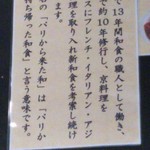 で13年間和食の職人として働き、
で約10年修行し、京料理を
スにフレンチ・イタリアン・アジ
理を取り入れ新和食を考案し続け
ます。
名の「パリから来た和」は「パリか
持ち帰った和食」と言う意味です。